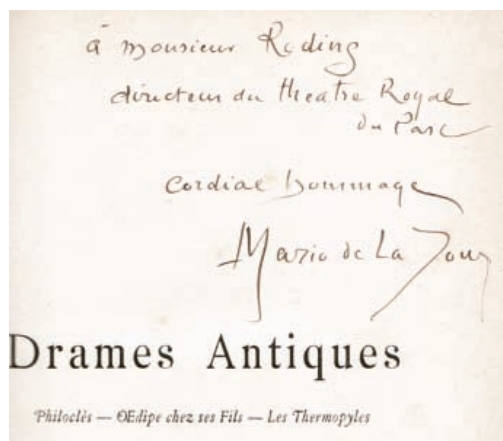 à monsieur Reding
directeur du theatre Royal
du Parc
Cordial hommage
Mario de La Tour
Drames Antiques
Philoclès — Œdipe chez ses Fils — Les Thermopyles